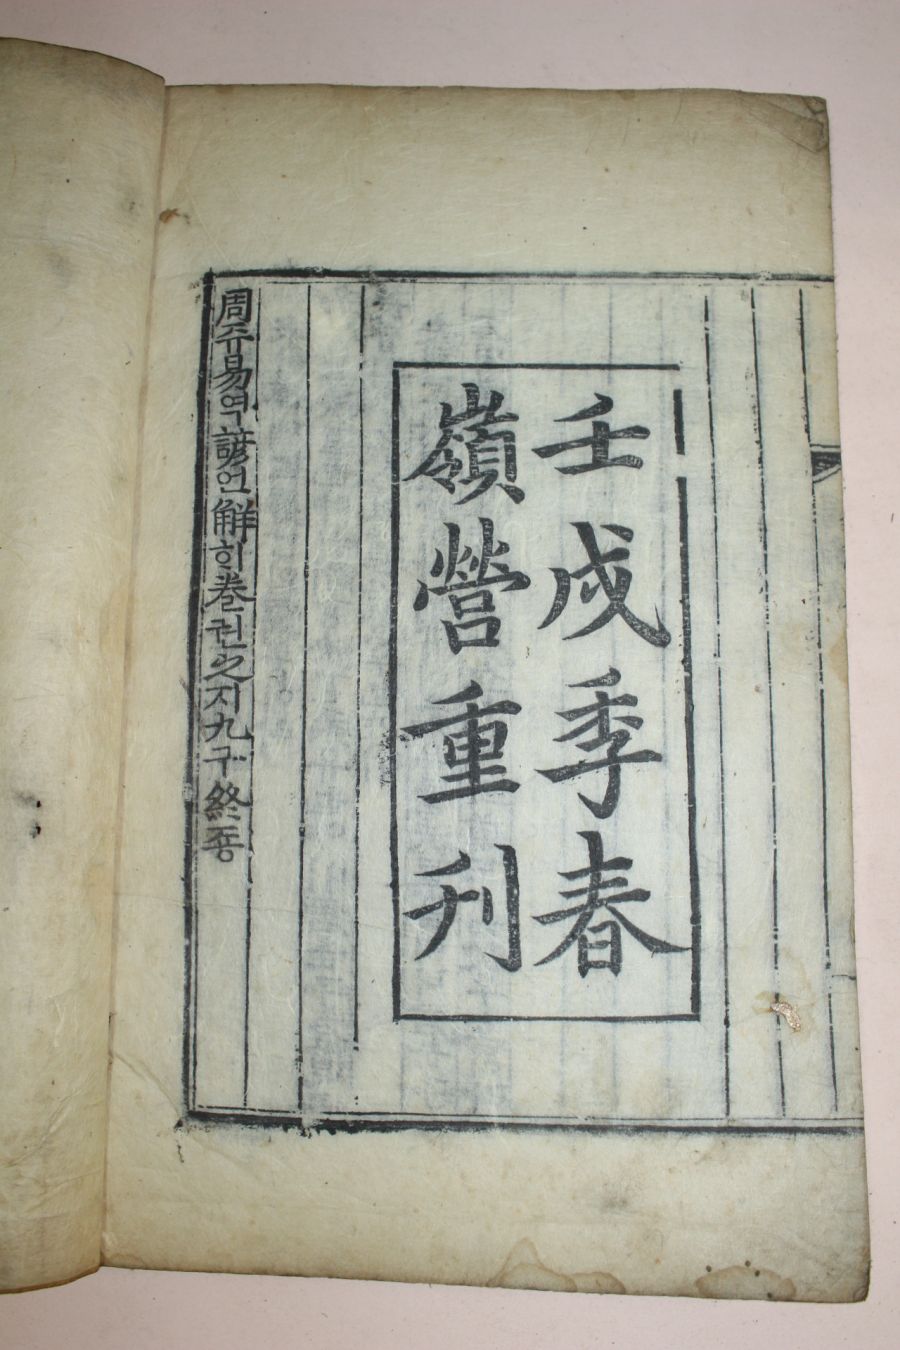 壬戌季春
嶺營重刊
周쥬易역諺언解ᄒᆡ卷권之지九구終죵